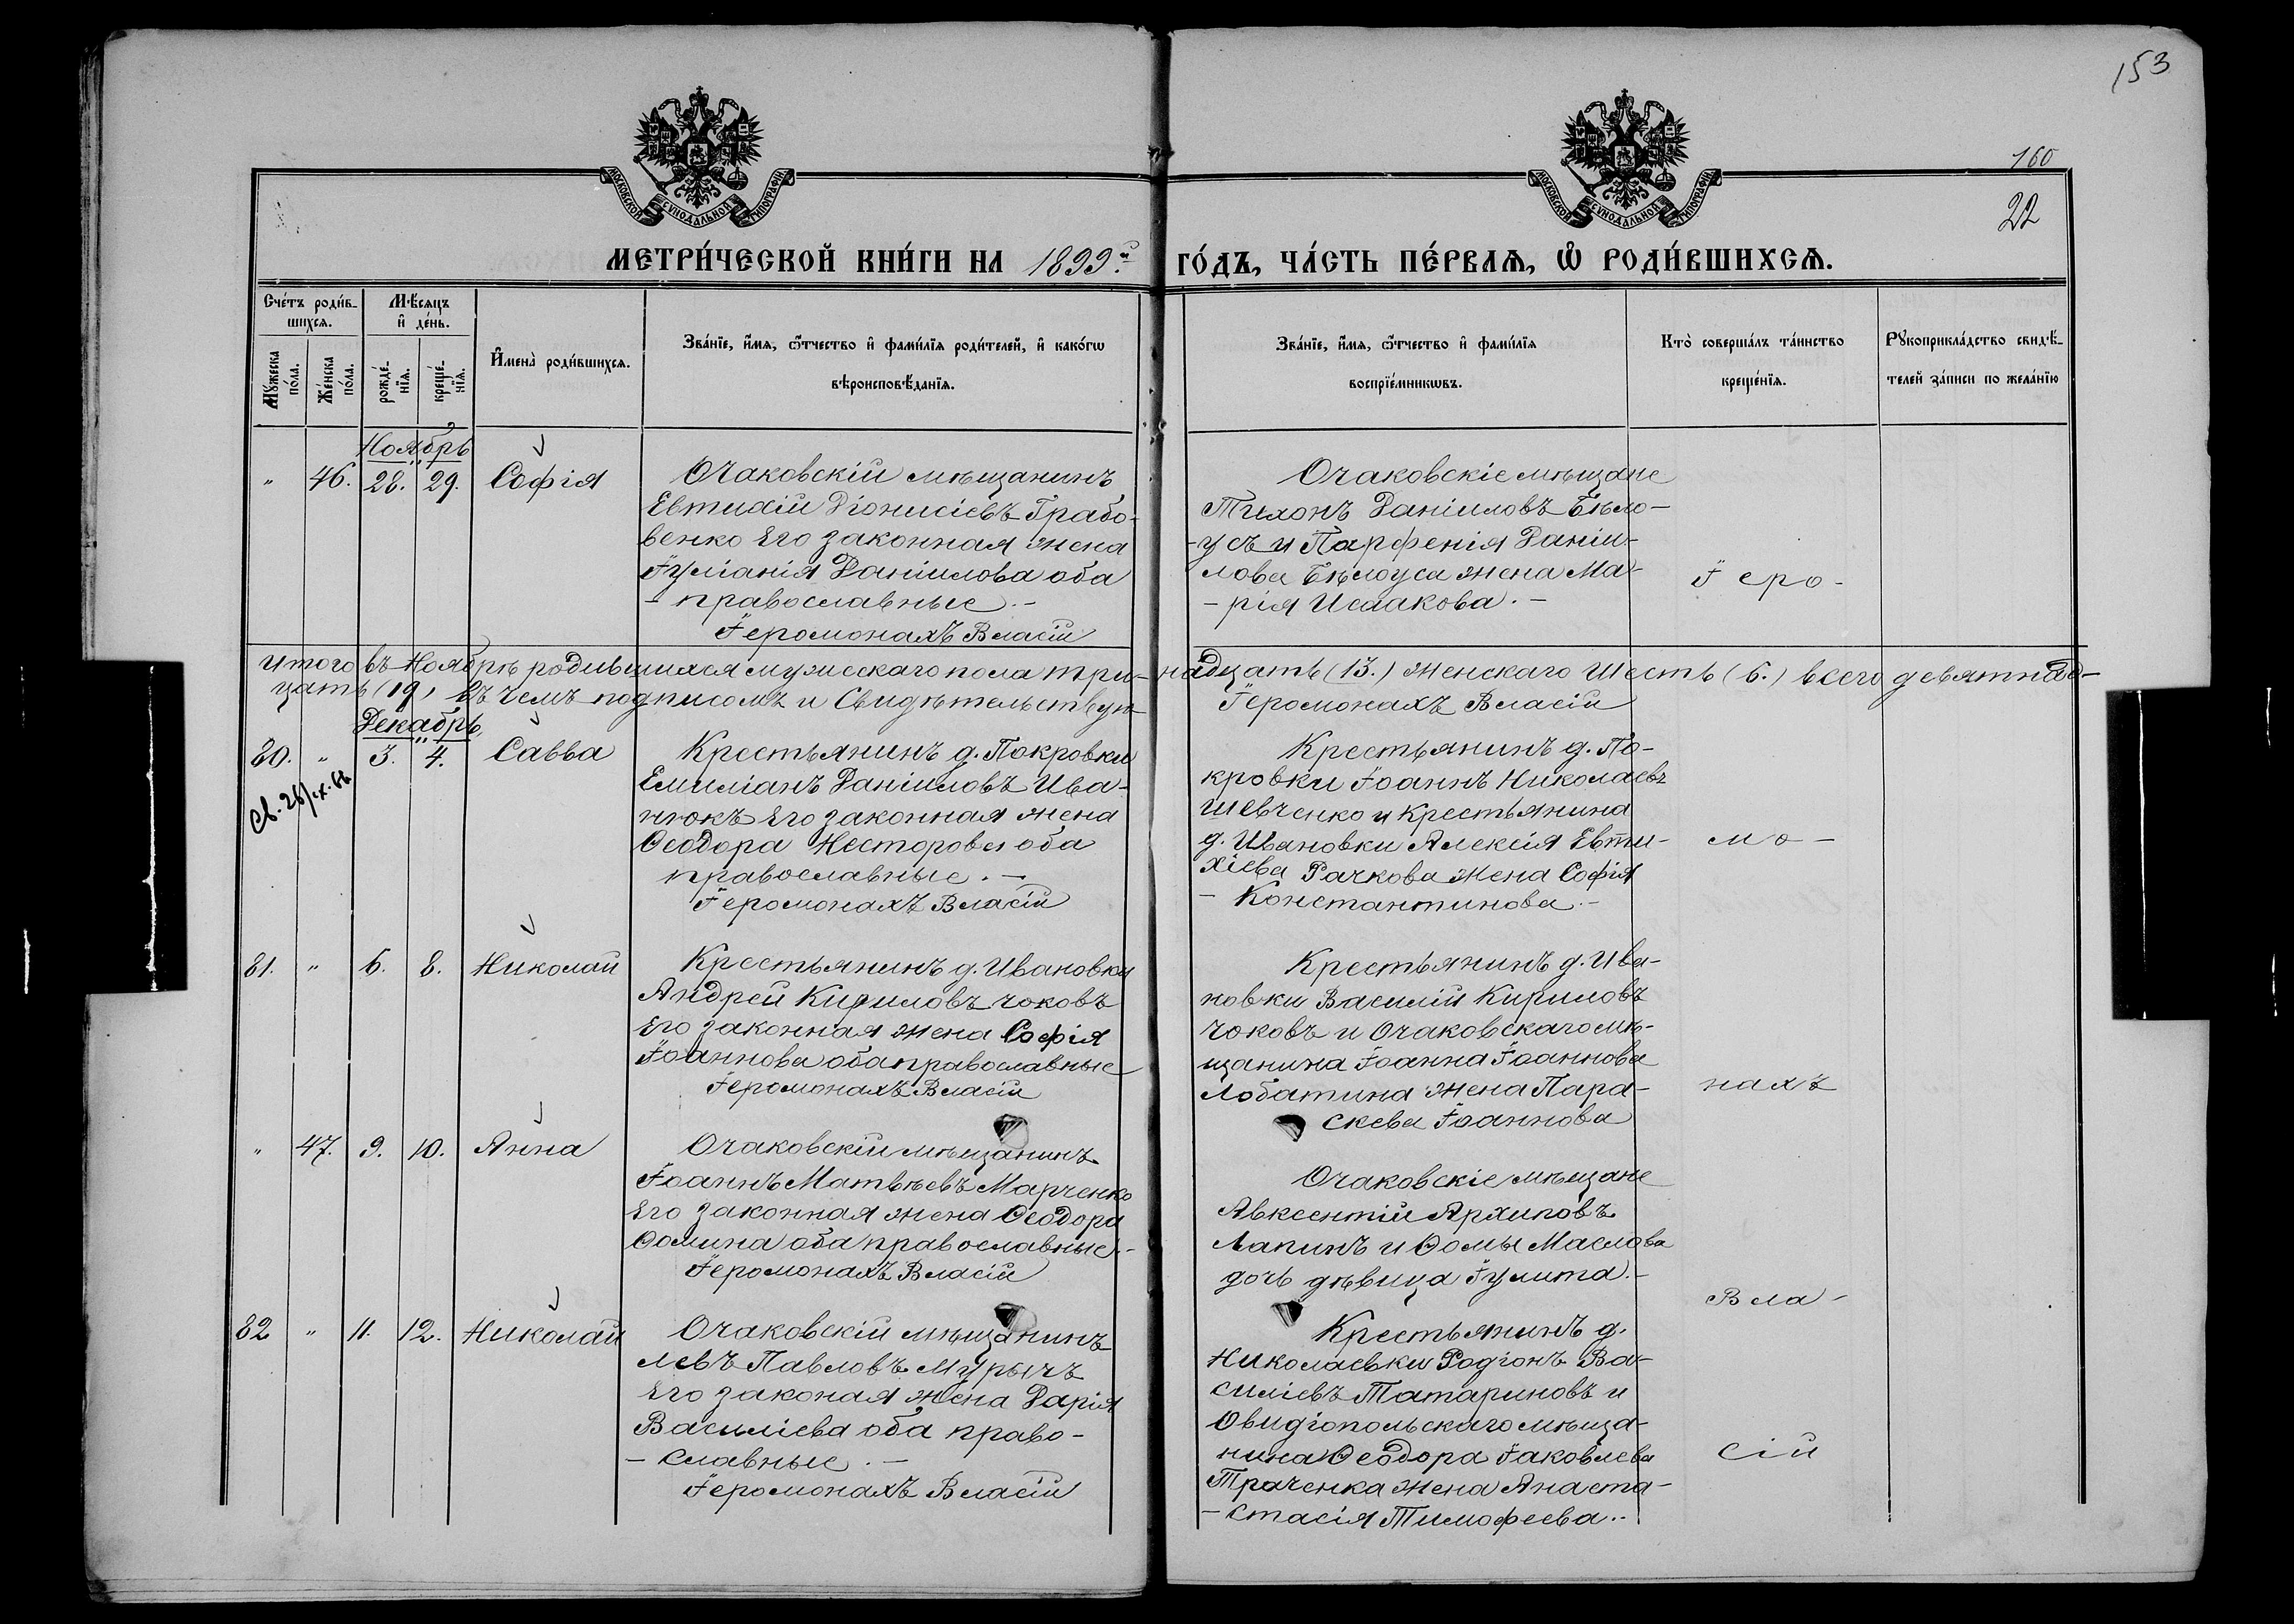 153
160
22
МОСКОВСКОЙ СУНОДАЛЬНОЙ ТИПОГРАФІИ
МОСКОВСКОЙ СУНОДАЛЬНОЙ ТИПОГРАФІИ
МЕТРИ́ЧЕСКОЙ КНИ́ГИ НА 1899.й ГО́ДЪ, ЧА́СТЬ ПЕ́РВАѦ, Ѡ РОДИ́ВШИХСѦ.
Сче́тъ роди́в-
шихсѧ.
Мѣ́сяцъ
и҆ де́нь.
Мꙋ́жеска
по́ла.
Же́нска
по́ла.
рожде́-
нїѧ.
креще́-
нїѧ.
И҆мена̀ роди́вшихсѧ.
Зва́нїе, и҆́мѧ, ѻ҆́тчество и҆ фами́лїѧ роди́телей, и҆ како́гѡ
вѣроисповѣ́данїѧ.
Зва́нїе, и҆́мѧ, ѻ҆́тчество и҆ фами́лїѧ
воспрїе́мникѡвъ.
Кто̀ соверша́лъ та́инство
креще́нїѧ.
Рꙋкоприкла́дство свидѣ́-
телей за́писи по жела́нїю
Ноябрь
" 46. 28. 29. Софія
Очаковскій мѣщанинъ
Евтихій Діонисіевъ Грабо-
венко Его законная жена
Іуліанія Даніилова оба
- православные. -
Іеромонахъ Власій
Очаковскіе мѣщане
Тихонъ Даніиловъ Бѣло-
-усъ и Парфенія Даніи-
лова Бѣлоуса жена Ма-
- рія Исаакова. -
Іеро-
Итого въ Ноябрѣ родившихся мужескаго пола три-надцать (13.) женскаго Шесть (6.) всего девятнад-
цать (19) въ чемъ подписомъ и Свидѣтельствую
Іеромонахъ Власій
Декабрь
80. " 3. 4. Савва
Крестьянинъ д. Покровки
Емиліанъ Даніиловъ Ива-
нюкъ Его законная жена
Ѳеодора Несторова оба
православные. -
Іеромонахъ Власій
Крестьянинъ д. По-
кровки Іоаннъ Николаевъ
Шевченко и Крестьянина
д. Ивановки Алексія Евти-
хіева Рачкова жена Софія
- Константинова. -
мо-
81. " 6. 8. Николай
Крестьянинъ д. Ивановки
Андрей Кириловъ Чоковъ
Его законная жена Софія
Іоаннова оба православные
Іеромонахъ Власій
Крестьянинъ д. Ива-
новки Василій Кириловъ
Чоковъ и Очаковскаго мѣ-
щанина Іоанна Іоаннова
Лобатина жена Пара-
скева Іоаннова
нахъ
" 47. 9. 10. Анна
Очаковскій мѣщанинъ
Іоаннъ Матвѣевъ Марченко
Его законная жена Ѳеодора
Ѳомина оба православные. -
Іеромонахъ Власій
Очаковскіе мѣщане
Авксентій Архиповъ
Лапинъ и Ѳомы Маслова
дочь дѣвица Іулита. -
Вла-
82 " 11. 12. Николай
Очаковскій мѣщанинъ
Левъ Павловъ Мурычъ
Его законая жена Дарія
Василіева оба право-
- славные. -
Іеромонахъ Власій
Крестьянинъ д.
Николаевки Родіонъ Ва-
силіевъ Татариновъ и
Овидіопольскаго мѣща-
нина Ѳеодора Іаковлева
Траченка жена Анаста-
- стасія Тимофеева..
сій